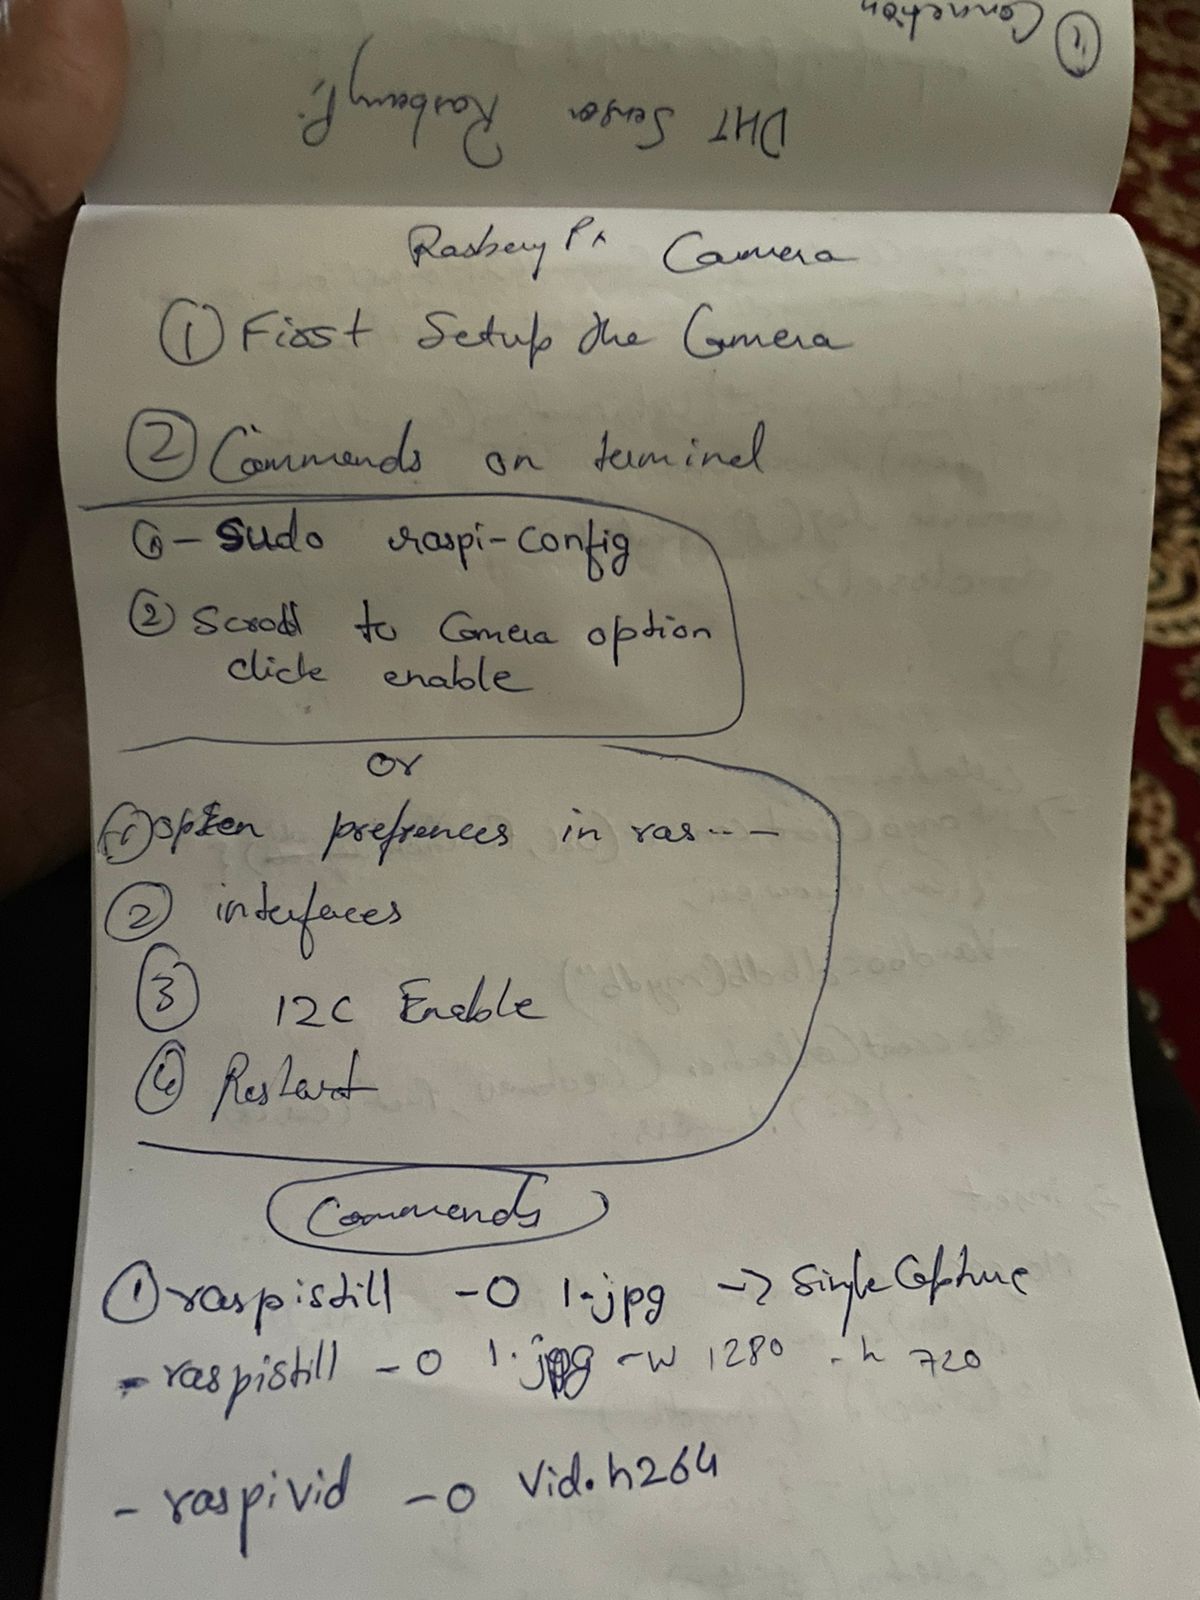 ① Connection
DHT Sensor Rasberry Pi
Rasbery Pi Camera
① First Setup the Camera
② Commands on terminal
① - Sudo raspi-config
② Scroll to Camera option
click enable
or
① open prefrences in ras...-
② interfaces
③ I2C Enable
④ Restart
Commends
① raspistill -o 1.jpg -> Single Capture
- raspistill -o 1.jpg -w 1280 -h 720
- raspivid -o Vid.h264